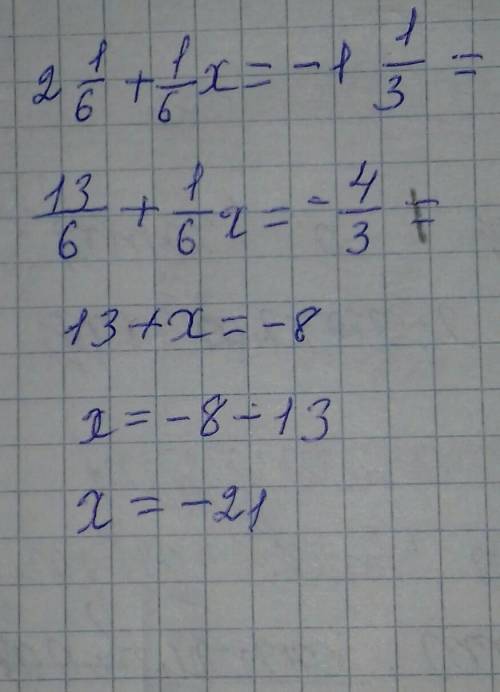 2 1/6 + 1/6 x = -1 1/3 =
13/6 + 1/6 x = -4/3 =
13 + x = -8
x = -8 - 13
x = -21